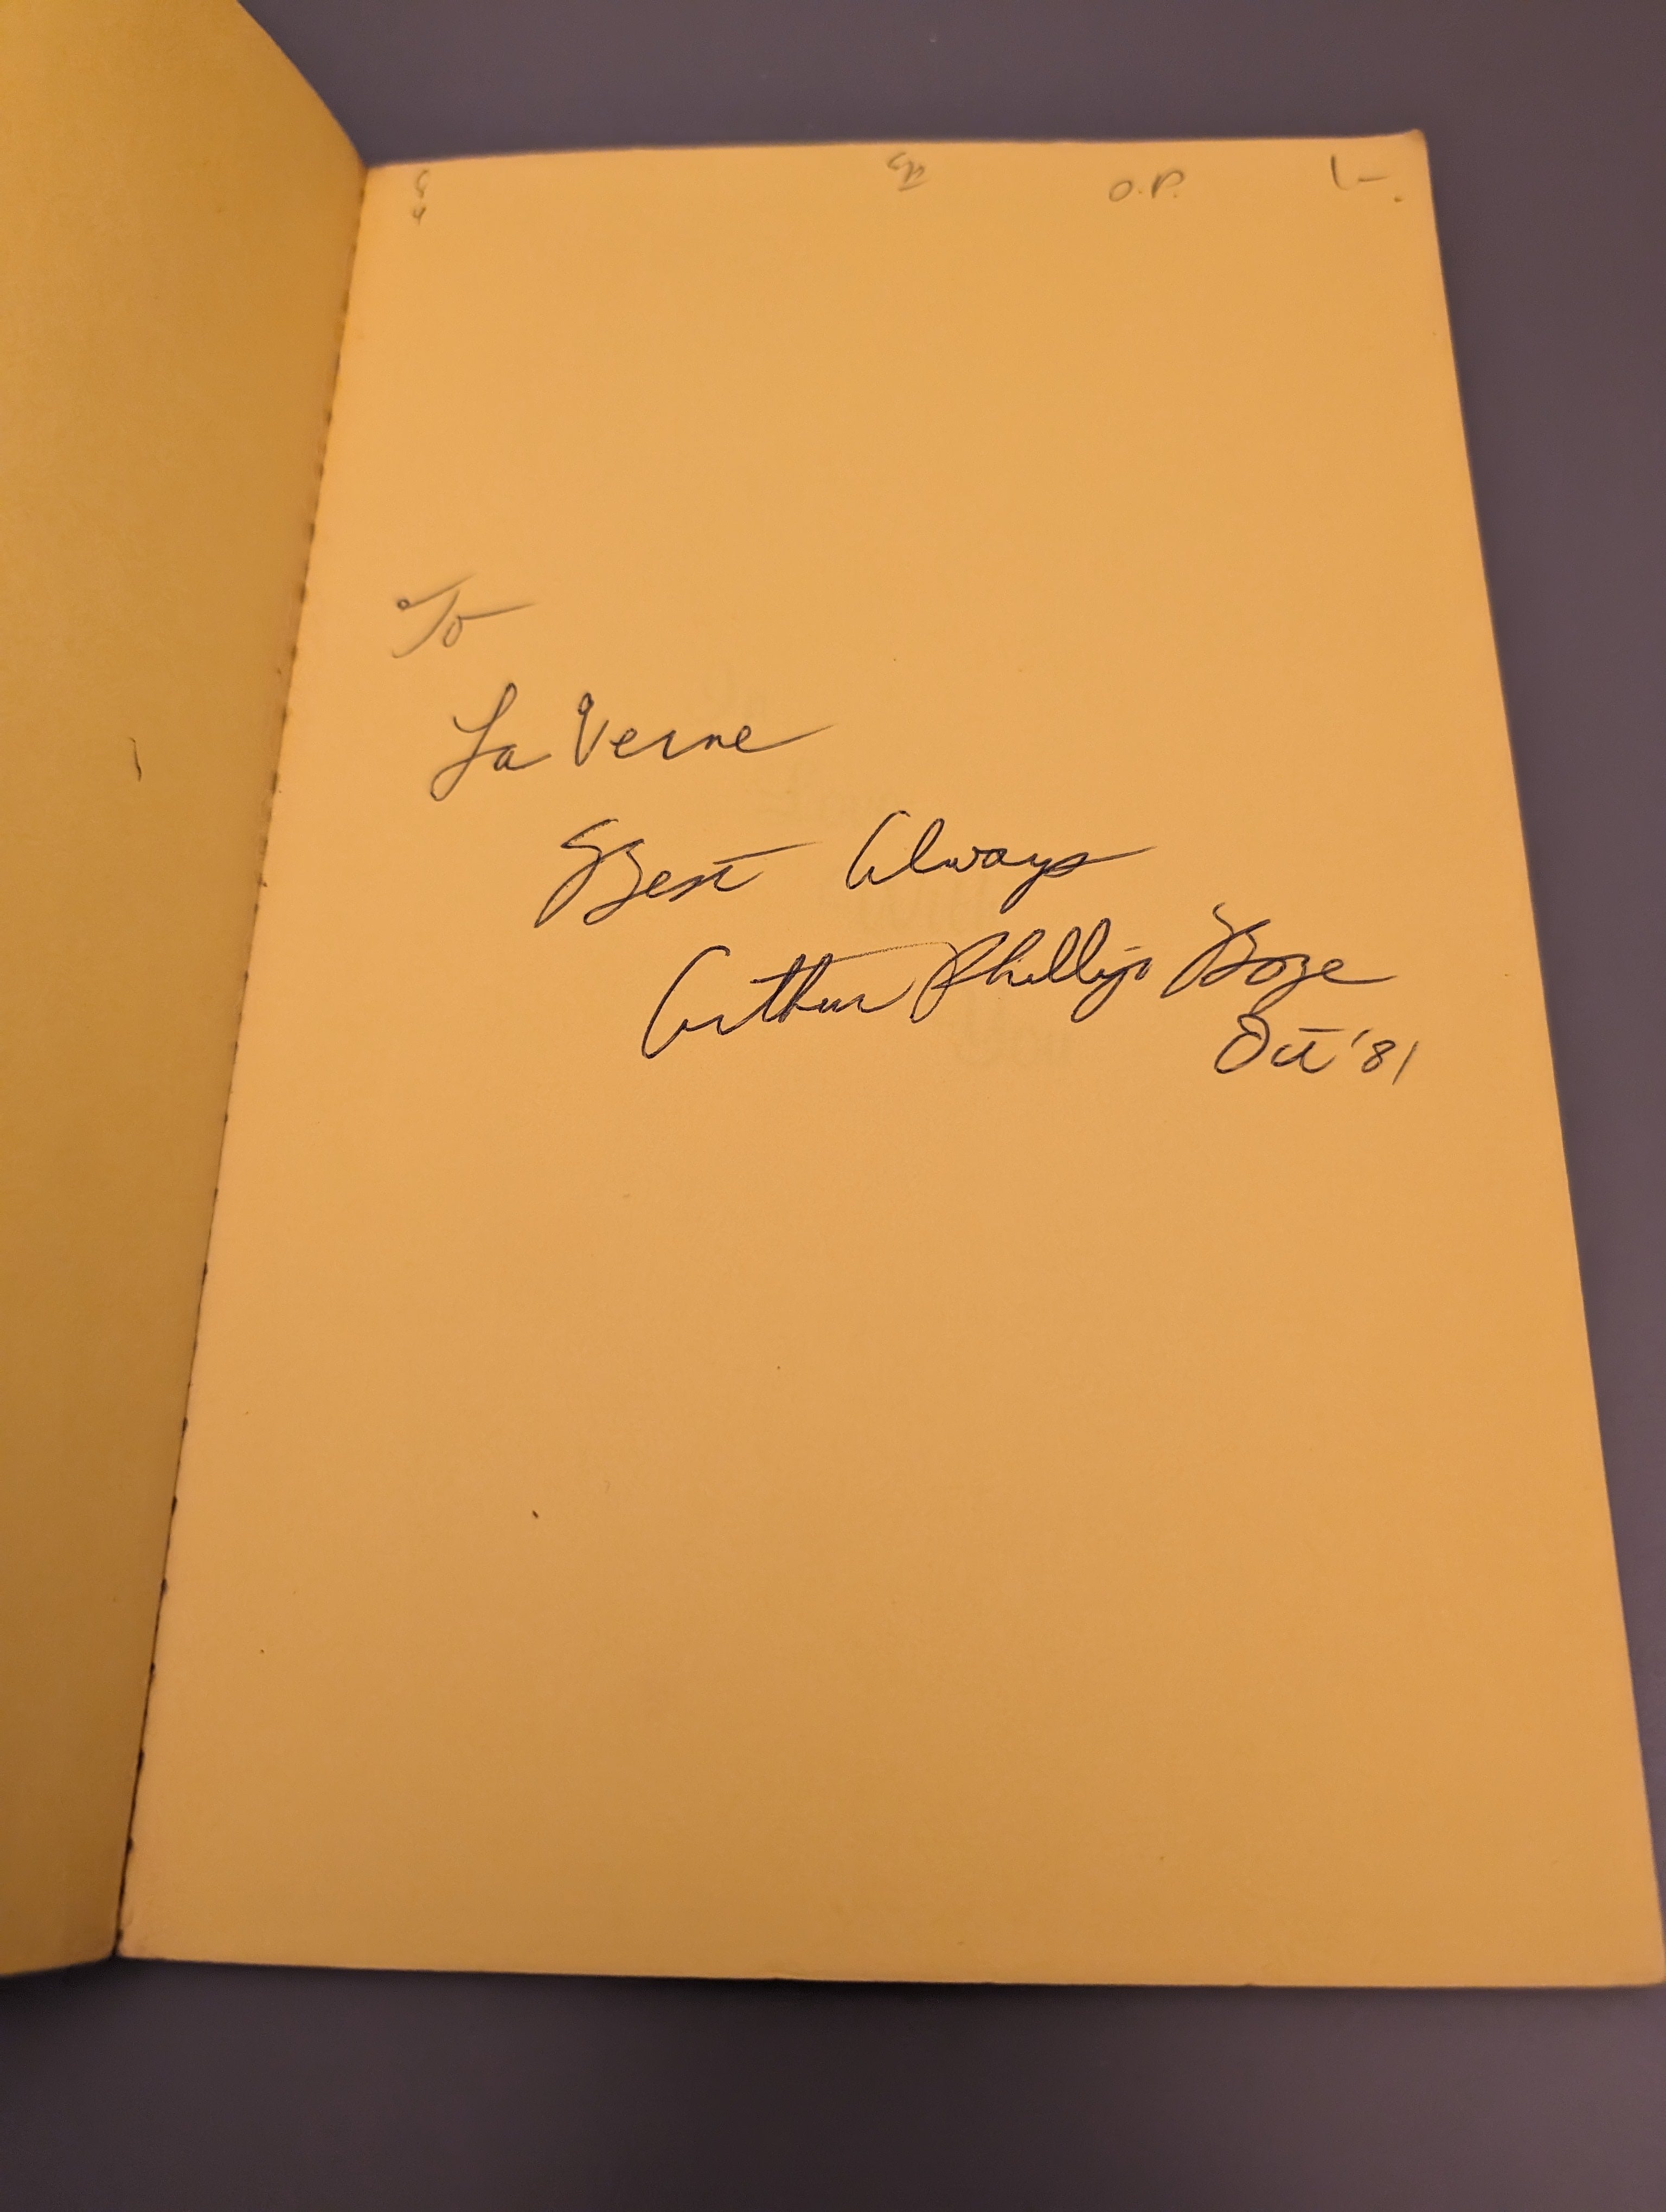 O.P.
To
La Verne
Best Always
Arthur Phillip Boze
Oct '81